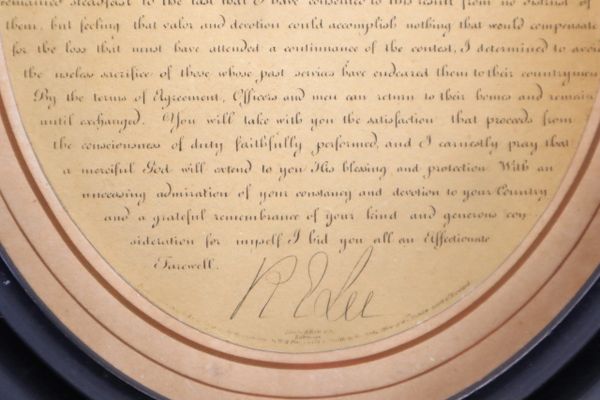 remained steadfast to the last that I have consented to this result from no distrust of
them, but feeling that valor and devotion could accomplish nothing that would compensate
for the loss that must have attended a continuance of the contest, I determined to avoid
the useless sacrifice of those whose past services have endeared them to their countrymen
By the terms of Agreement, Officers and men can return to their homes and remain
until exchanged. You will take with you the satisfaction that proceeds from
the consciousness of duty faithfully performed, and I earnestly pray that
a merciful God will extend to you His blessing and protection With an
unceasing admiration of your constancy and devotion to your Country
and a grateful remembrance of your kind and generous con
sideration for myself I bid you all an Affectionate
Farewell.
R E Lee